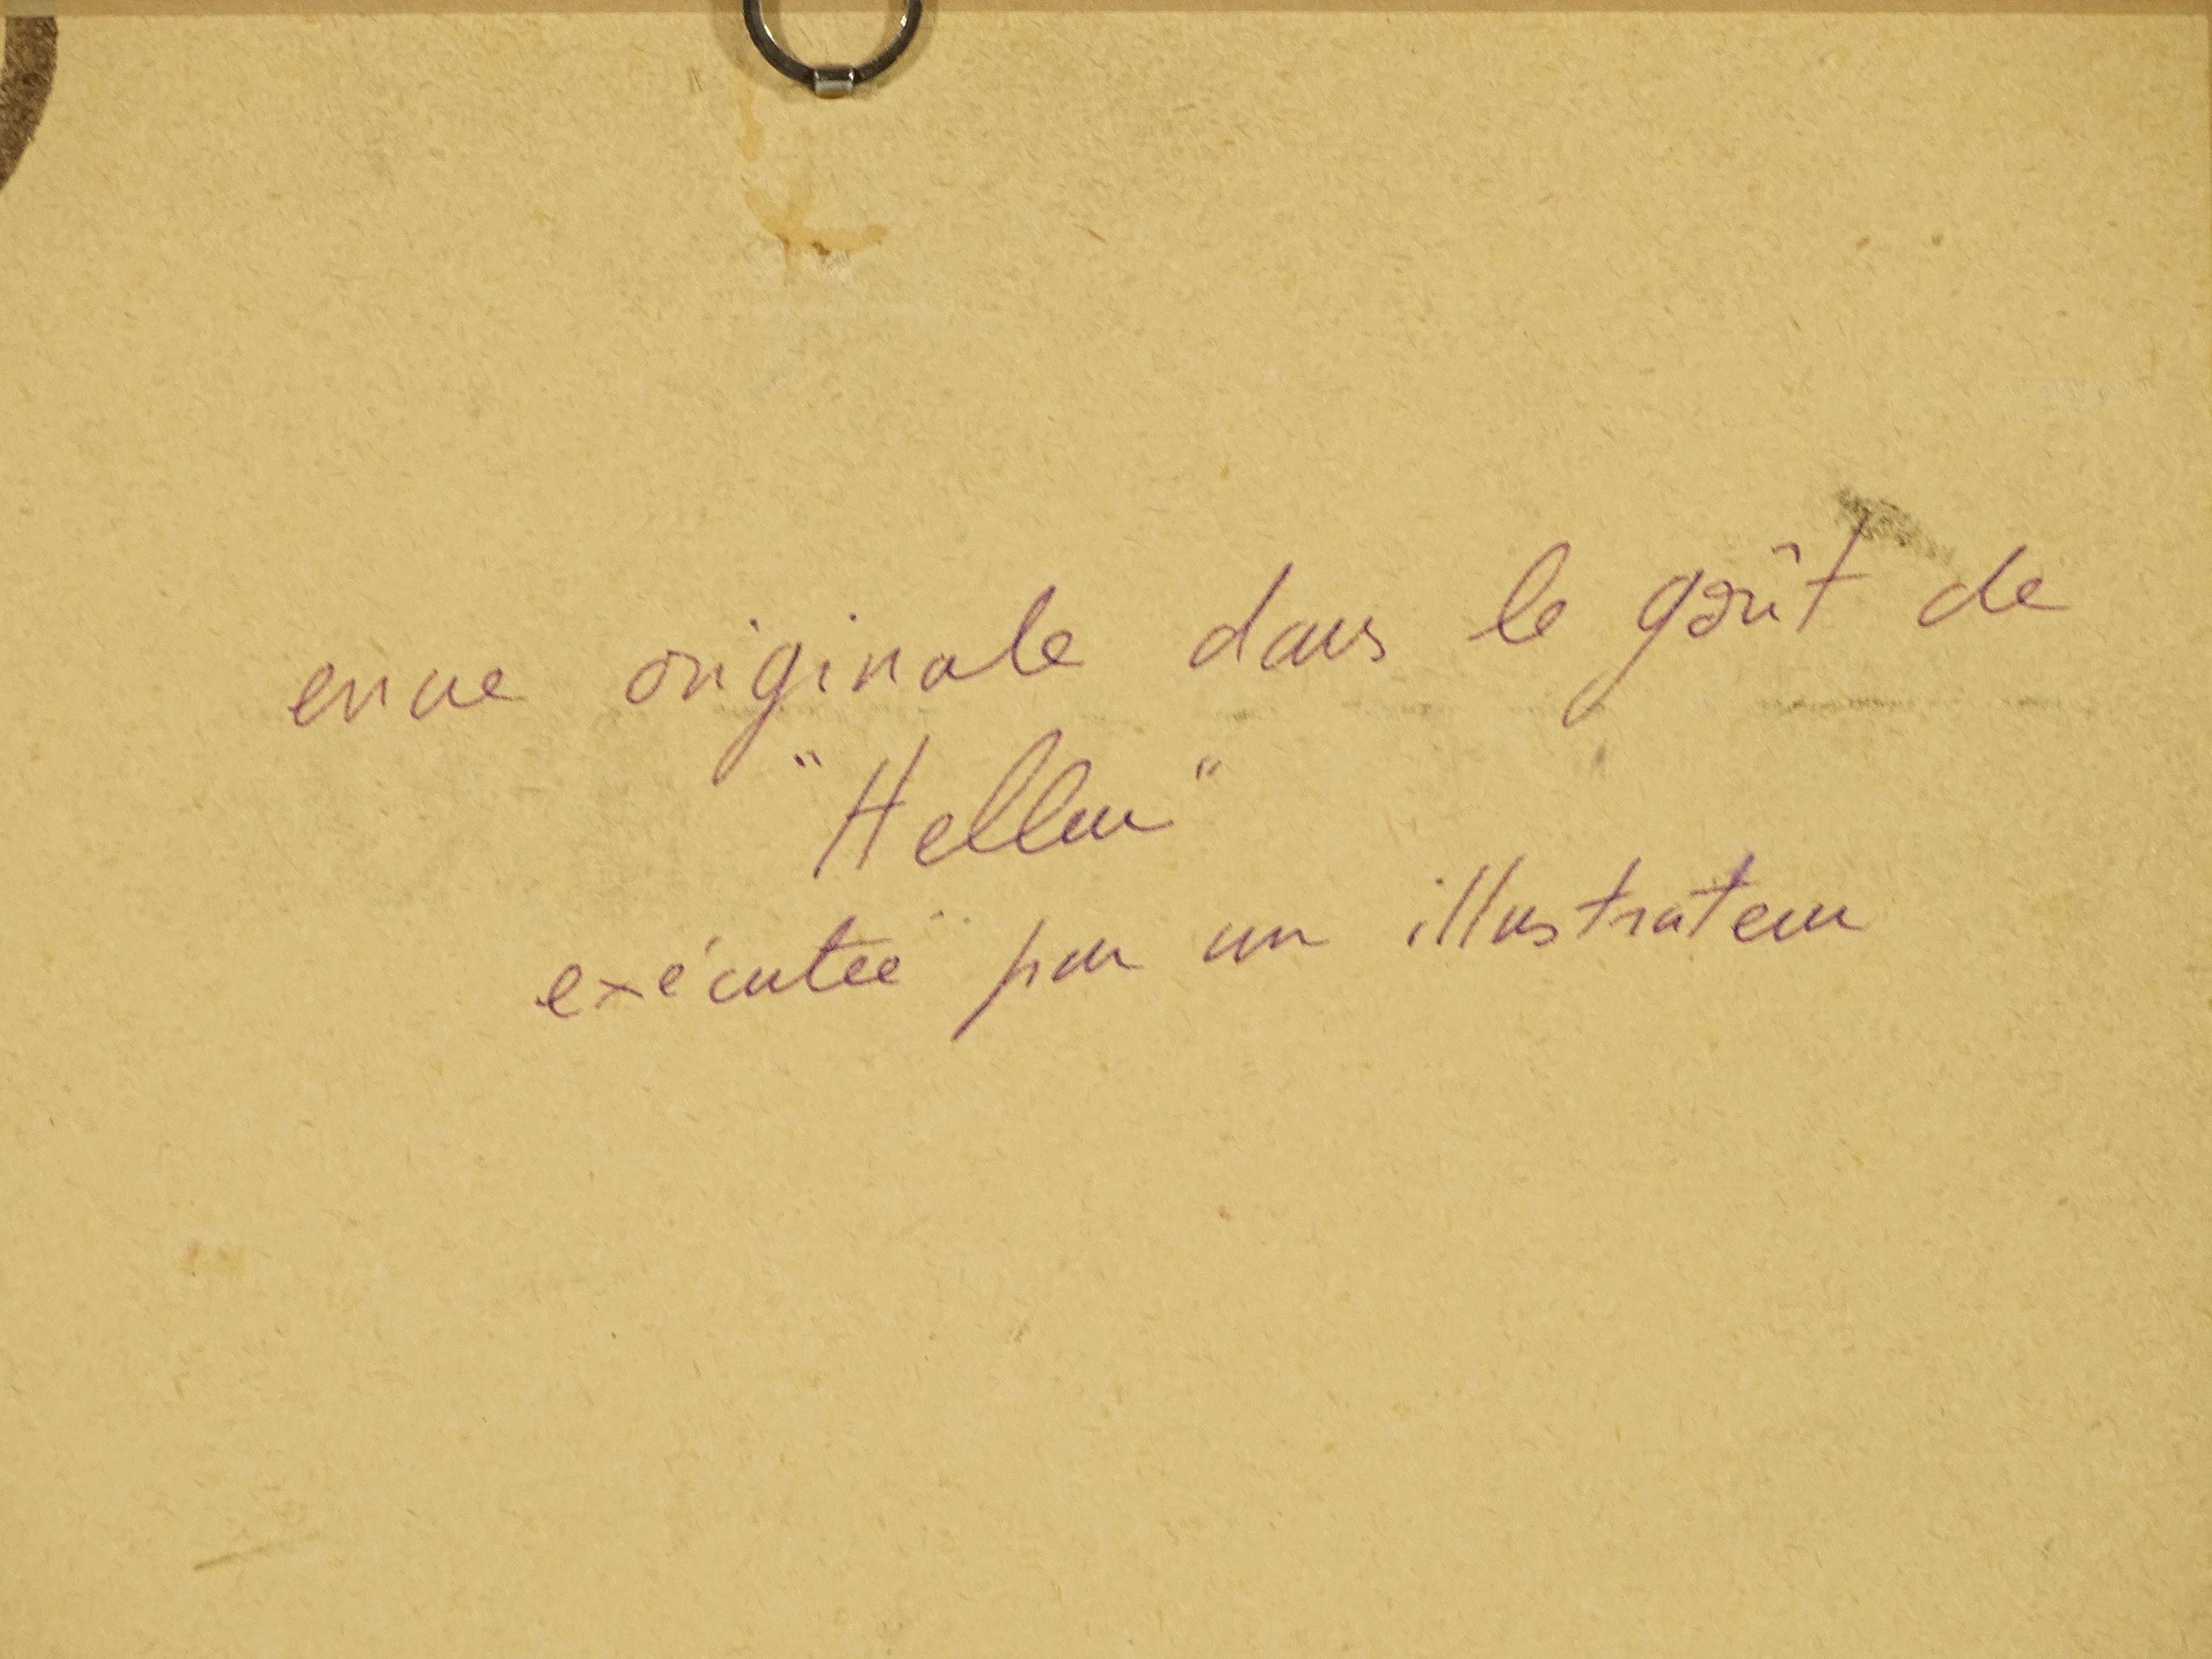 encre originale dans le goût de
"Helleu"
exécutée par un illustrateur